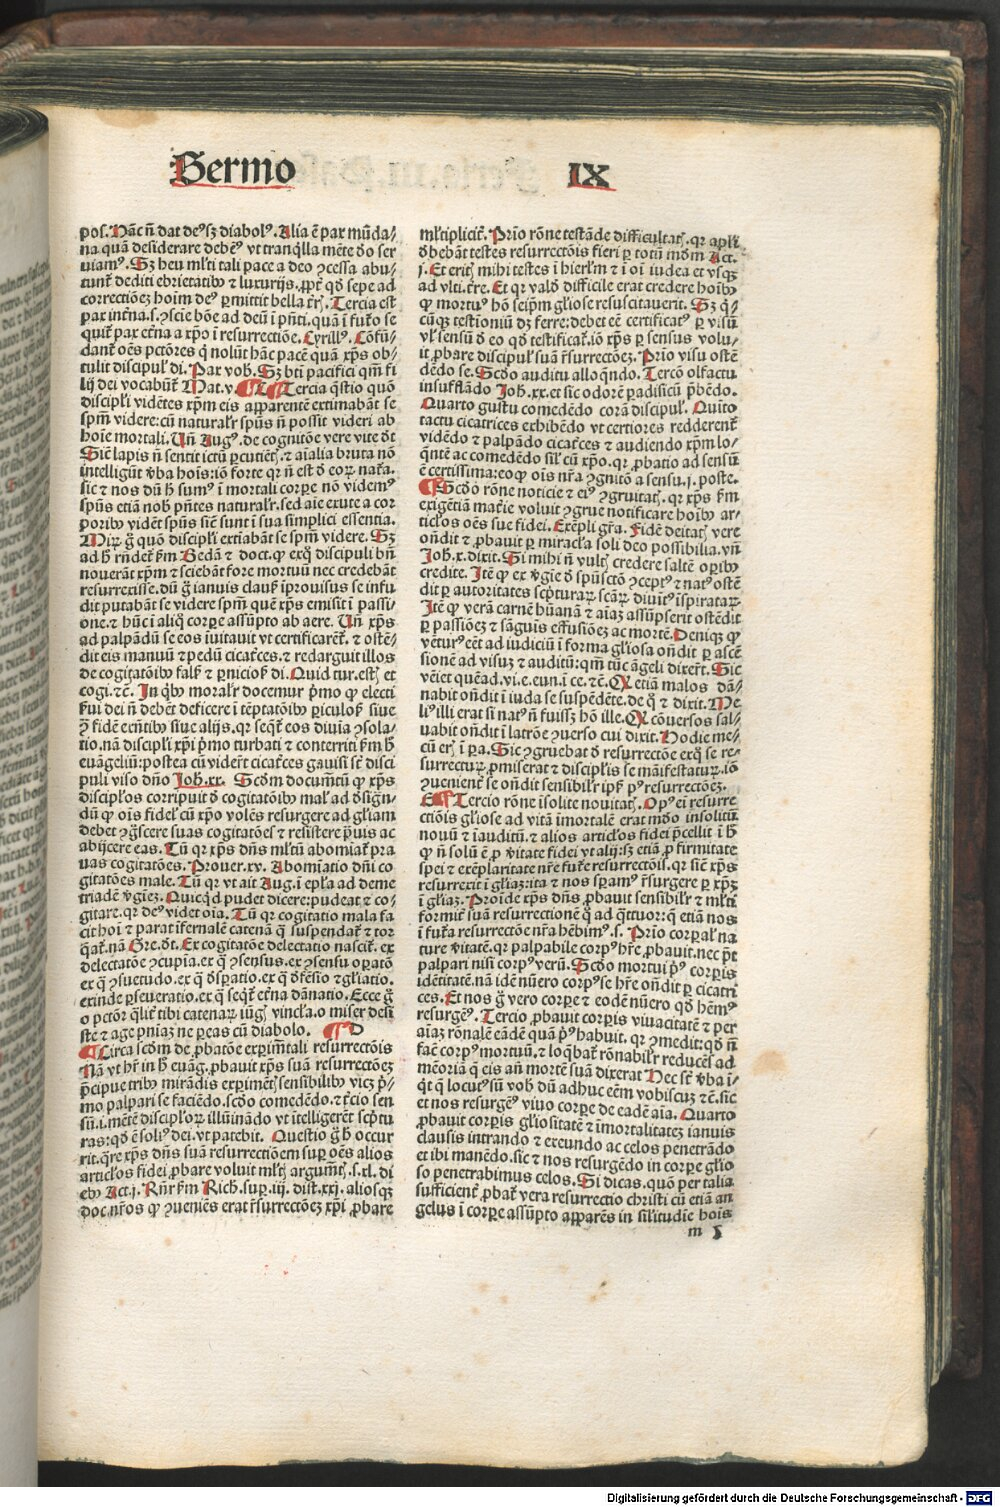 Sermo IX
pos. Hāc ñ dat deꝰ sꝫ diabolꝰ. Alia ē pax mūda/
na quā desiderare debēꝰ vt tranq̇lla mēte do ser
uiamꝰ. Sꝫ heu ml̃ti tali pace a deo ꝯcessa abu/
tunt̃ dediti ebrietatibꝰ ⁊ luxurijs. ꝓpt̃ qđ sepe ad
correctiōeꝫ hoīm deꝰ ꝑmittit bella t̃r̃. Tercia est
pax int̃na. s. ꝯscie bōe ad deū ī pñti. quā ī futo se
quit̃ pax et̃na a xp̄o ī resurrectiōe. Cyrillꝰ. Cōfū/
dant̃ oēs pctōres q̇ nolūt hāc pacē quā xp̄s ob/
tulit discipul̃ di. Pax vob̃. Sꝫ bt̃i pacifici qm̃ fi
lij dei vocabūt̃ Mat. v. Tercia q̄stio quō
discipl̃i vidētes xp̄m eis apparentē extimabāt se
spm̃ videre: cū natural̃r spūs ñ possit videri ab
hoīe mortali. Uñ Augꝰ. de cognitōe vere vite đt
Sic̃ lapis ñ sentit ictū ꝑcutiēt̃. ⁊ aīalia bruta nō
intelligūt v̄ba hoīs: iō forte qꝛ ñ est đ eoꝝ nat̃a.
sic ⁊ nos dū h̄ sumꝰ ī mortali corꝑe nō videmꝰ
spūs etiā nob̃ pñtes natural̃r. sed aīe exute a cor
poribꝰ vidēt spūs sic̃ sunt ī sua simplici essentia.
Miꝝ ḡ quō discipl̃i extiābāt se spm̃ videre. Sꝫ
ad h̄ rñdet̃ ẜm Bedā ⁊ doct. ꝙ exq̊ discipuli bñ
nouerāt xp̄m ⁊ sciebāt fore mortuū nec credebāt
resurrexisse. dū ḡ ianuis clausꝭ īprouisus se infu
dit putabāt se videre spm̃ quē xp̄s emisit ī passi/
one. ⁊ hūc ī aliq̊ corꝑe assūpto ab aere. Uñ xp̄s
ad palpādū se eos īuitauit vt certificarēt̃. ⁊ ostē/
dit eis manuū ⁊ pedū cicat̃ces. ⁊ redarguit illos
de cogitatōibꝰ falsꝭ ⁊ ꝑniciosꝭ di. Quid tur. esti. et
cogi. ⁊c̃. In q̇bꝰ moral̃r docemur p̄mo ꝙ electi
ẜui dei ñ debēt deficere ī tēptatōibꝰ ꝑiculosꝭ siue
ꝯ̃ fidē eent̃ibꝰ siue alijs. qꝛ seqt̃ eos diuīa ꝯsola/
tio. nā discipl̃i xp̄i p̄mo turbati ⁊ conterriti ẜm h̄
euāgeliū: postea cū vidēt̃ cicat̃ces gauisi st̃ disci
puli viso dño Joh̃. xx. Scđm documt̃ū ꝙ xp̄s
discipl̃os corripuit đ cogitatōibꝰ mal̃ ad đsign̄/
dū ꝙ oīs fidel̃ cū xp̄o volēs resurgere ad gl̃iam
debet ꝯg̊scere suas cogitatōes ⁊ resistere p̄uis ac
abijcere eas. Tū qꝛ xp̄s dñs ml̃tū abomiat̃ pra
uas cogitatōes. Prouer. xv. Abomīatio dñi co
gitatōes male. Tū qꝛ vt ait Aug. ī epl̃a ad deme
triadē v̄gīeꝫ. Quicq̇d pudet dicere: pudeat ⁊ co/
gitare. qꝛ deꝰ videt oīa. Tū qꝛ cogitatio mala fa
cit hoī ⁊ parat īfernalē catenā q̄ suspendat̃ ⁊ tor
q̄at̃. nā Gre. đt. Ex cogitatōe delectatio nascit̃. ex
delectatōe ꝯcupīa. ex q̄ ꝯsensus. ex ꝯsensu oꝑatō
ex q̄ ꝯsuetudo. ex q̄ đsꝑatio. ex q̄ đfēsio ⁊ gl̃iatio.
exinde ꝑseueratio. ex q̄ seqt̃ et̃na dānatio. Ecce ḡ
o pctōr q̄lit̃ tibi catenaꝝ iūgit̃ vincl̃a. o miser desi
ste ⁊ age pnīaꝫ ne ꝑeas cū diabolo. D
Circa scđm de ꝓbatōe exꝑimt̃ali resurrectōis
Nā vt hr̃ in h̄ euāg. ꝓbauit xp̄s suā resurrectōeꝫ
p̄cipue tribꝰ mirādis exꝑimēt̃ sensibilibꝰ vicꝫ p̄/
mo palpari se faciēdo. scđo comedēdo. ⁊ t̃cio sen
sū. i. mētē discipl̃oꝝ illuīnādo vt ītelligerēt scp̄tu
ras: qđ ē soliꝰ dei. vt patebit. Questio ḡ h̄ occur
rit. q̄re xp̄s dñs suā resurrectiōem suꝑ oēs alios
articl̃os fidei ꝓbare voluit ml̃t̃ argumt̃. s. xl. di
ebꝰ Act. j. Rñr ẜm Rich. suꝑ. iij. dist. xxj. aliosqꝫ
doc. nr̃os ꝙ ꝯueniēs erat r̃surrectōeꝫ xp̄i ꝓbare
ml̃tiplicit̃. Prīo rōne testāde difficultat̃. qꝛ apl̃i
đbebāt testes resurrectōis fieri ꝑ totū mđm Act.
j. Et erit̃ mihi testes ī hierl̃m ⁊ ī oī iudea et vsqꝫ
ad vlti. t̃re. Et qꝛ valđ difficile erat credere hoībꝰ
ꝙ mortuꝰ hō seip̄m gl̃iose resuscitauerit. Sꝫ q̇/
cūqꝫ testīoniū dꝫ ferre: debet eē certificatꝰ ꝑ visū
vl̃ sensū đ eo qđ testificat̃. iō xp̄s ꝑ sensus volu/
it ꝓbare discipul̃ suā r̃surrectōeꝫ. Prīo visu ostē
dēdo se. Scđo auditu alloq̄ndo. Tercō olfactu
insufflādo Joh̃. xx. et sic odorē paradisicū p̄bēdo.
Quarto gustu comedēdo corā discipul̃. Quīto
tactu cicatrices exhibēdo vt certiores redderent̃
vidēdo ⁊ palpādo cicat̃ces ⁊ audiendo xp̄m lo/
q̄ntē ac comedēdo sil̃ cū xp̄o. qꝛ ꝓbatio ad sensū
ē certissima: eo ꝙ oīs nr̃a ꝯgnitō a sensu. j. poste.
Scđo rōne noticie ⁊ eiꝰ ꝯgruitat̃. qꝛ xp̄s ẜm
exigētiā mat̃ie voluit ꝯgrue notificare hoībꝰ ar/
ticl̃os oēs sue fidei. Exēpli gr̃a. Fidē deitat̃ vere
oñdit ⁊ ꝓbauit ꝑ miracl̃a soli deo possibilia. vñ
Joh̃. x. dixit. Si mihi ñ vult̃ credere saltē oꝑibꝰ
credite. Itē ꝙ ex v̄gīe đ spūsctō ꝯceptꝰ ⁊ natꝰ ostē
dit ꝑ autoritates scp̄turaꝝ scāꝝ diuītꝰ īspirataꝝ
Itē ꝙ verā carnē hūanā ⁊ aīaꝫ assūpserit ostēdit
ꝑ passiōeꝫ ⁊ sāguīs effusiōeꝫ ac mortē. Deniqꝫ ꝙ
vēturꝰ eēt ad iudiciū ī forma gl̃iosa oñdit ꝑ ascē
sionē ad visuꝫ ⁊ auditū: qm̃ tūc āgeli dixer̃t. Sic
vēiet quēad. vi. e. eun. ī ce. ⁊c̃. Qꝙ etiā malos dā/
nabit oñdit ī iuda se suspēdēte. de q̊ ⁊ dixit. Me
liꝰ illi erat si natꝰ ñ fuisꝫ hō ille. Qꝙ cōuersos sal/
uabit oñdit ī latrōe ꝯuerso cui dixit. Hodie me/
cū er̃ ī ꝑa. Sic ꝯgruebat đ resurrectōe exq̊ se re/
surrecturꝝ ꝓmiserat ⁊ discipl̃is se māifestaturꝝ. iō
ꝯuenient̃ se oñdit sensibil̃r ip̃sꝭ pꝰ resurrectōeꝫ.
E Tercio rōne īsolite nouitat̃. Opꝰ ei resurre
ctiōis gl̃iose ad vitā īmortalē erat mđo īsolitū
nouū ⁊ īauditū. ⁊ alios articl̃os fidei p̄cellit ī h̄
ꝙ ñ solū ē ꝓ v̄itate fidei vt alij: sꝫ etiā ꝓ firmitate
spei ⁊ exēplaritate nr̃e fut̃e resurrectōis. qꝛ sic̃ xp̄s
resurrexit ī gl̃iaꝫ: ita ⁊ nos spamꝰ r̃surgere ꝑ xp̄ꝫ
ī gl̃iaꝫ. Proīde xp̄s dñs ꝓbauit sensibil̃r ⁊ ml̃ti
formit̃ suā resurrectionē q̊ ad q̄ttuor: q̄ etiā nos
ī fut̃a resurrectōe nr̃a hēbimꝰ. s. Prīo corꝑal̃ na
ture v̄itatē. qꝛ palpabile corpꝰ hr̃e ꝓbauit. nec p̄t
palpari nisi corpꝰ verū. Scđo mortui pꝰ corꝑis
idētitatē. nā idē nūero corpꝰ se hr̃e oñdit ꝑ cicatri
ces. Et nos ḡ vero corꝑe ⁊ eodē nūero qđ hēmꝰ
resurgēꝰ. Tercio ꝓbauit corꝑis viuacitatē ⁊ per
aīaꝫ rōnalē eādē quā pꝰ habuit. qꝛ ꝯmedit: qđ ñ
facē corpꝰ mortuū. ⁊ loq̄bat̃ rōnabil̃r reducēs ad
mēoriā q̄ eis añ mortē suā dixerat Hec st̃ v̄ba ī/
q̇t q̄ locutꝰ sū vob̃ dū adhuc eēm vobiscuꝫ ⁊c̃. sic
et nos resurgēꝰ viuo corꝑe de eadē aīa. Quarto
ꝓbauit corꝑis gl̃iositatē ⁊ īmortalitateꝫ ianuis
clausis intrando ⁊ exeundo ac celos penetrādo
et ibi manēdo. sic ⁊ nos resurgēdo in corꝑe gl̃io
so penetrabimus celos. Si dicas. quō per talia
sufficient̃ ꝓbat̃ vera resurrectio christi cū etiā an
gelus ī corꝑe assūpto apparēs in sil̃itudīe hoīs
m 5
Digitalisierung gefördert durch die Deutsche Forschungsgemeinschaft - DFG